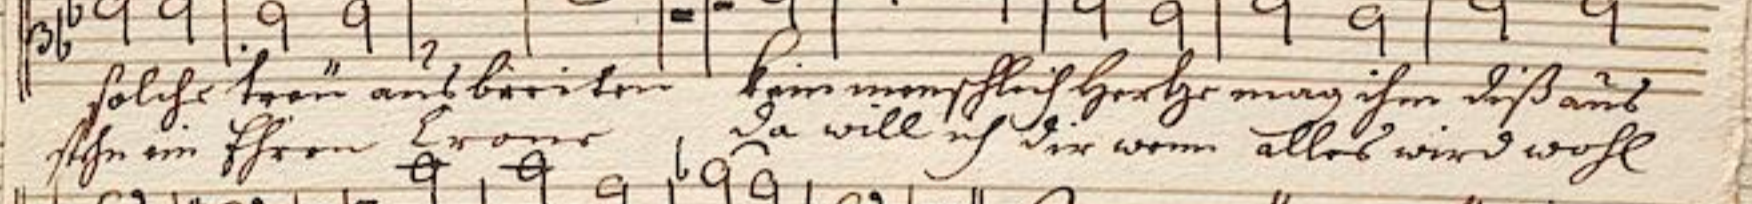 solche treü ausbreiten kein menschlich Hertze mag ihm diß aus
stehn ein Ehren Crone da will ich dir wenn alles wird wohl